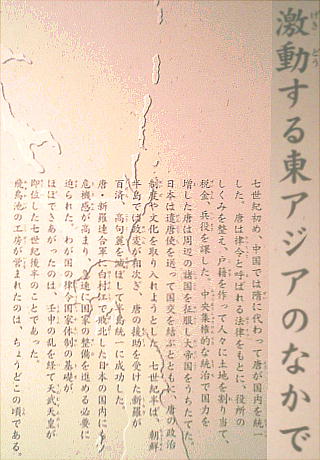 激動する東アジアのなかで
げき どう
七世紀初め、中国では隋に代わって唐が国内を統一
した。唐は律令と呼ばれる法律をもとに、役所の
しくみを整え、戸籍を作って人々に土地を割り当て、
税金、兵役を課した。中央集権的な統治で国力を
増した唐は周辺の諸国を征服し大帝国をうちたてた。
日本は遣唐使を送って国交を結ぶとともに、唐の政治
制度や文化を取り入れようとした。七世紀半ば、朝鮮
半島では政変が相次ぎ、唐の援助を受けた新羅が
百済、高句麗を滅ぼして半島統一に成功した。
唐・新羅連合軍に白村江で敗北した日本の国内にも
危機感が高まり、急速に国家の整備を進める必要に
迫られた。わが国の律令国家体制の基礎が
ほぼできあがったのは、壬申の乱を経て天武天皇が
即位した七世紀後半のことであった。
飛鳥池の工房が営まれたのは、ちょうどこの頃である。